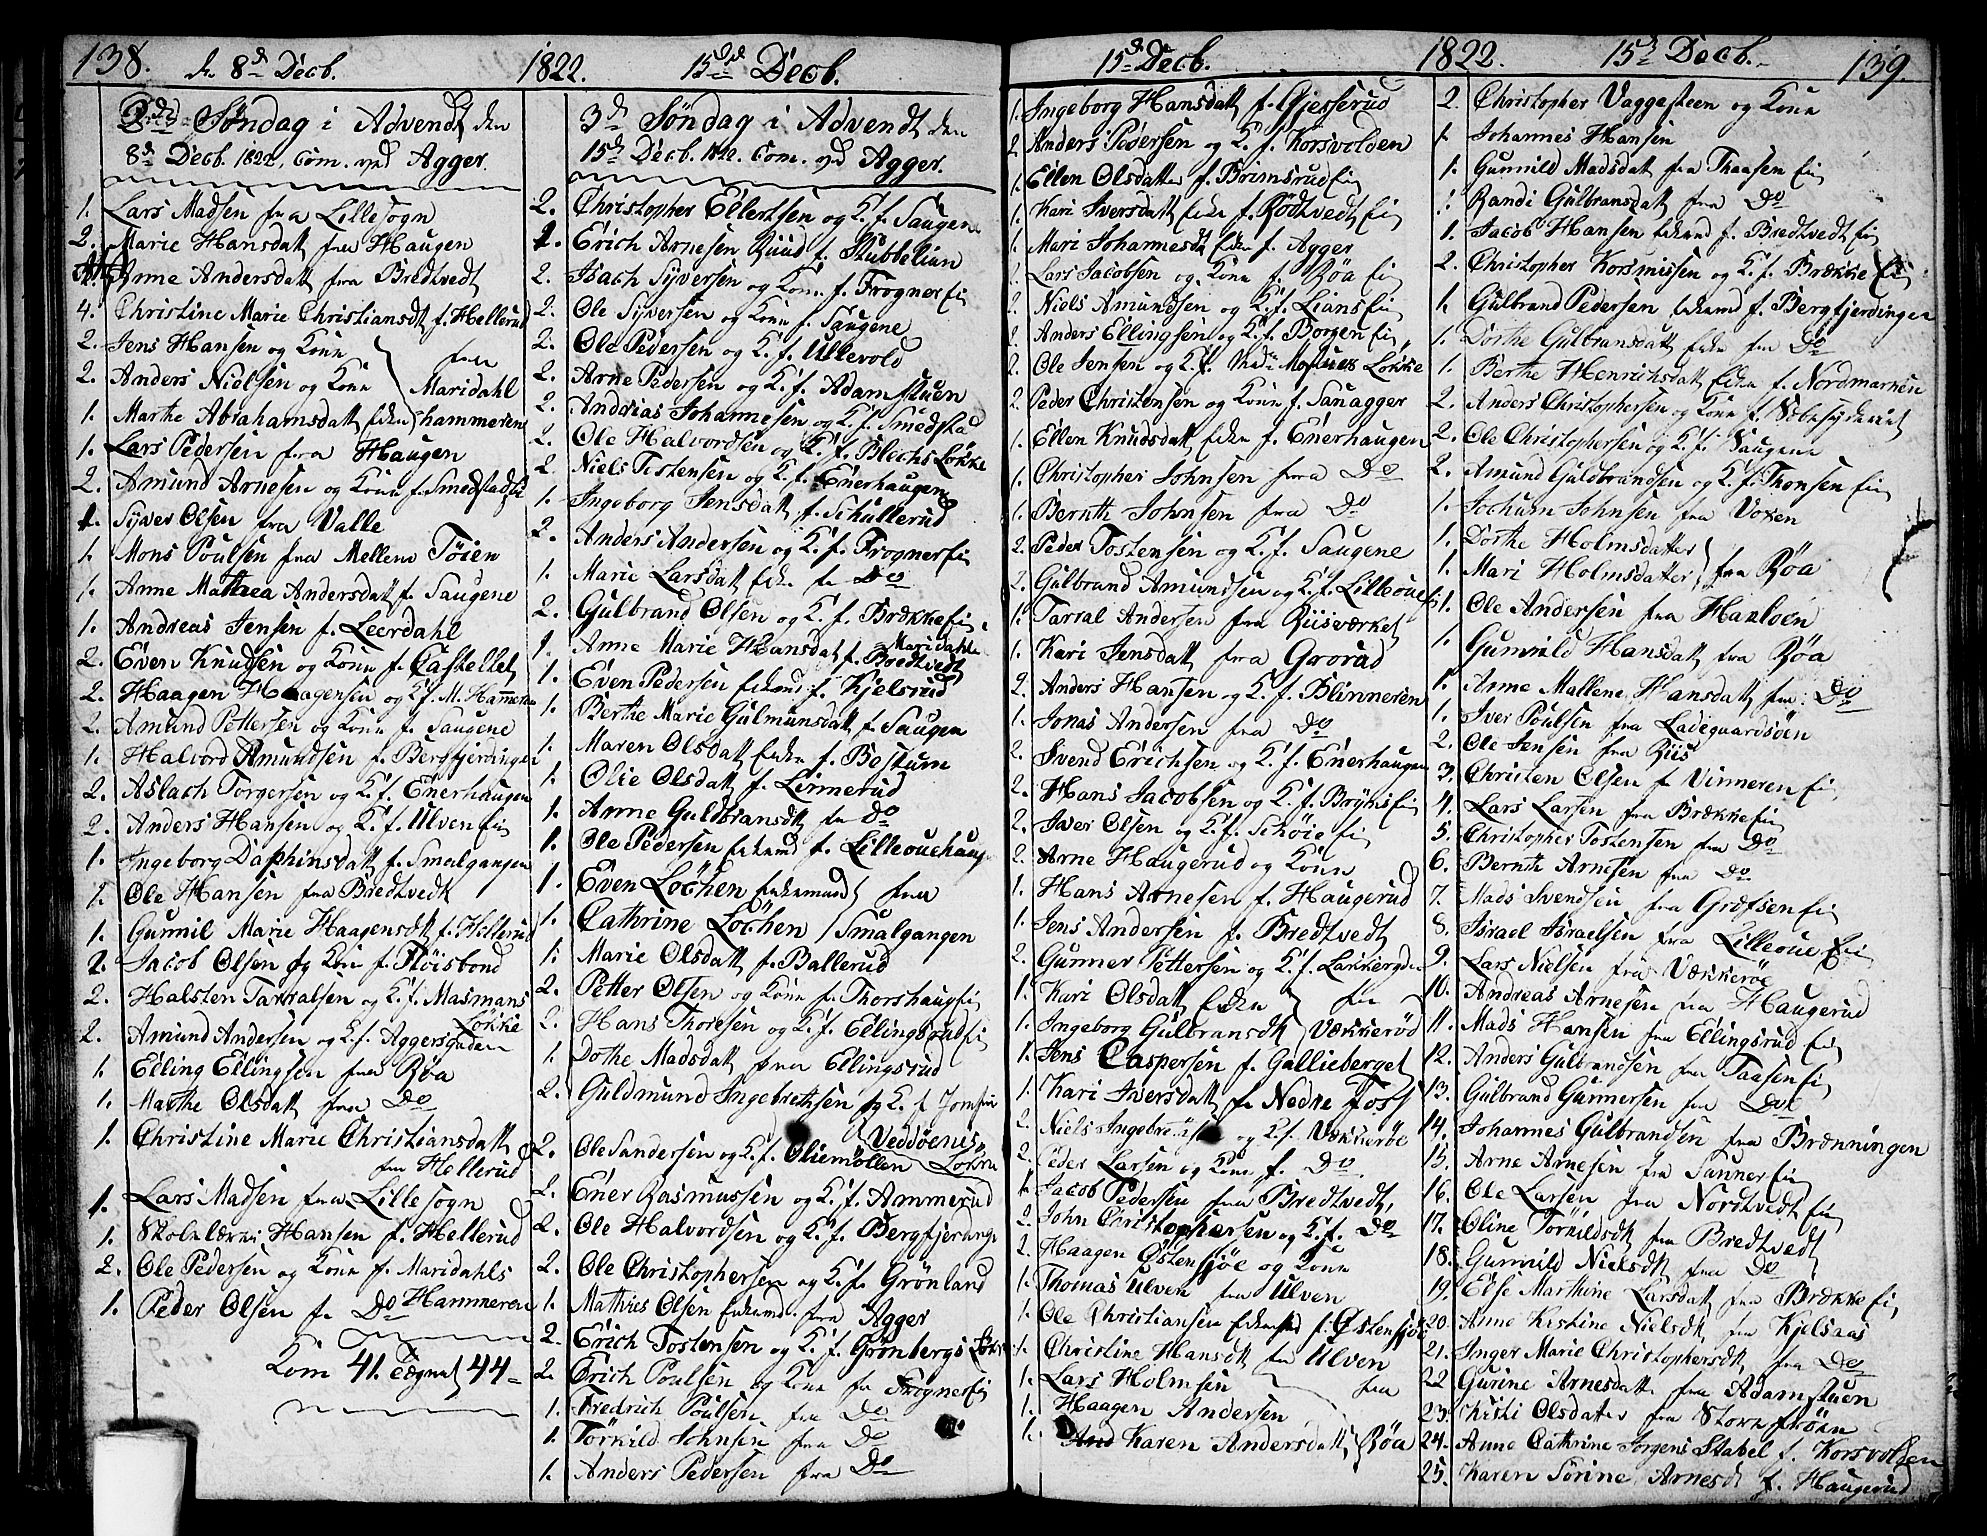 138. d. 8de Decb. 1822. 15de Decb.
2den Søndag i Advendt den
8de Decb. 1822. Com. ved Agger.
1. Lars Madsen fra Lillesogn
2. Marie Hansdatt fra Haugen
Anne Andersdatt fra Bredtvedt
4. Christine Marie Christiansdt f. Hellerud
2. Jens Hansen og Kone
fra
2. Anders Nielsen og Kone
Maridahl
1. Marthe Abrahamsdatt Enke hammeren
1. Lars Pedersen fra Haugen
2. Amund Arnesen og Kone f. Smedstad
1. Syver Olsen fra Valle
1. Mons Poulsen fra Mellem Töien
1. Anne Mathea Andersdatt f. Saugene
1. Andreas Jensen f. Leerdahl
2. Even Knudsen og Kone f. Castellet
2. Haagen Haagensen og K. f. M. Hammeren
2. Amund Pettersen og Kone f. Saugene
1. Halvord Amundsen f. Bergfjerdingen
2. Aslach Torgersen og K. f. Enerhaugen
2. Anders Hansen og K. f. Ulven Ei
1. Ingeborg Daphinsdatt f. Smalgangen
1. Ole Hansen fra Bredtvedt
1. Gunnil Marie Haagensdt f. Hellerud
2. Jacob Olsen og Kone f. Støisbond
2. Halsten Tarralsen og K. f. Masmans
Løkke
2. Amund Andersen og K. f. Aggersgaden
1. Elling Ellingsen fra Røa
1. Marthe Olsdatt fra Do
1. Christine Marie Christiansdatt
fra Hellerud
1. Lars Madsen fra Lillesogn
1. Skolelærer Hansen f. Hellerud
2. Ole Pedersen og Kone f. Maridahls
Hammeren
1. Peder Olsen f. Do
Kom 41. Tegnet 44
3de Søndag i Advendt den
15de Decb. 1822. Com. ved Agger.
2. Christopher Ellertsen og K. f. Saugene
1. Erich Arnesen Ruud f. Stubbelian
2. Isach Syversen og Kone f. Frogner Ei
2. Ole Syversen og Kone f. Saugene
2. Ole Pedersen og K. f. Ullevold
2. Arne Pedersen og K. f. Adamstuen
2. Andreas Johannesen og K. f. Smedstad
2. Ole Halvordsen og K. f. Blechs Løkke
2. Niels Tostensen og K. f. Enerhaugen
1. Ingeborg Jensdatt f. Schullerud
2. Anders Andersen og K. f. Frogner Ei
1. Marie Larsdatt Enke fra Do
2. Gulbrand Olsen og K. f. Brække Ei
Maridahl
1. Anne Marie Hansdatt f. Bredtvedt
1. Even Pedersen Enkemd f. Kjelsrud
1. Berthe Marie Gulmunsdatt f. Saugen
1. Maren Olsdatt Enke f. Bestum
1. Olie Olsdatt f. Linnerud
1. Anne Guldbransdt fra Do
1. Ole Pedersen Enkemd f. Lilleouehaug
1. Even Løchen Enkemand fra
1. Cathrine Løchen Smalgangen
1. Marie Olsdatt f. Ballerud
2. Petter Olsen og Kone f. Thorshaug Ei
2. Hans Thoresen og K. f. Ellingsrud Ei
1. Dorthe Madsdatt fra Ellingsrud
2. Guldmund Ingebrethsen og K. f.
Veddøenes
Løkke
2. Ole Sandersen og K. f. Oliemøllen
2. Ener Rasmussen og K. f. Ammerud
2. Ole Halvordsen og K. f. Bergfjerding
2. Ole Christophersen og K. f. Grönland
1. Mathies Olsen Enkemd fra Agger
2. Erich Tostensen og K. f. Grønbergs
2. Erich Poulsen og Kone fra Frogner Ei
1. Fredrich Poulsen fra Do
1. Törkild Johnsen fra Do
1. Anders Pedersen fra Do
15de Decb. 1822. 15de Decb. 139.
1. Ingeborg Hansdatt f. Gjesserud
2. Anders Pedersen og K. f. Korsvolden
1. Ellen Olsdatter f. Brimsrud Ei
1. Kari Iversdatt Enke f. Rödtvedt Ei
1. Mari Johannesdt Enke f. Agger
Lars Jacobsen og Kone f. Røa Ei
2. Niels Amundsen og K. f. Lians Ei
2. Anders Ellingsen og K. f. Borgen Ei
2. Ole Jensen og K. f. Løkke
2. Peder Christensen og Kone f. Sanagger
1. Ellen Knudsdatt Enke f. Enerhaugen
1. Christopher Johnsen fra Do
1. Bernth Johnsen fra Do
2. Peder Tostensen og K. f. Saugene
2. Gulbrand Amundsen og K. f. Lilleoue Ei
1. Tarral Andersen fra Riisværket
1. Kari Jensdatt fra Grorud
2. Anders Hansen og K. f. Blinneren
1. Jonas Andersen fra Do
2. Svend Erichsen og K. f. Enerhaugen
2. Hans Jacobsen og K. f. Bryns Ei
2. Iver Olsen og K. f. Schøie Ei
2. Arne Haugerud og Kone
1. Hans Arnesen f. Haugerud
1. Jens Andersen f. Bredtvedt
2. Gunner Pettersen og K. f. Lakkergden
1. Kari Olsdatt Enke fra
1. Ingeborg Gulbransdt Vækkerød
1. Jens Caspersen f. Gallieberget
1. Kari Iversdatt fra Nedre Foss
2. Niels og K. f. Vækkerøe
2. Peder Larsen og Kone f. Do
1. Jacob Pedersen fra Bredtvedt
2. John Christophersen og K. f. Do
2. Haagen Østensjöe og Kone
1. Thomas Ulven fra Ulven
1. Ole Christiansen Enkemd f. Østensjöe
1. Christine Hansdt fra Ulven
1. Lars Holmsen fra
1. Haagen Andersen
1. Karen Andersdatt Røa
2. Christopher Vaggesteen og Kone
1. Johannes Hansen
1. Gunnild Madsdatt fra Thaasen Ei
1. Randi Gulbransdatt fra Do
1. Jacob Hansen Enkemd f. Bredtvedt Ei
2. Christopher Korsmissen og K. f. Brække Ei
1. Gulbrand Pedersen Enkemd f. Bergfjerdingen
1. Dorthe Gulbransdatt Enke fra Do
1. Berthe Henrichsdatt Enke f. Nordmarken
2. Anders Christophersen og Kone f.
2. Ole Christophersen og K. f. Saugene
2. Amund Guldbrandsen og K. f. Thonsen Ei
1. Jochum Johnsen fra Voxen
1. Dorthe Holmsdatter
1. Mari Holmsdatter fra Røa
1. Ole Andersen fra Hanloen
1. Gunnild Hansdatt fra Røa
1. Anne Mallene Hansdatt fra Do
1. Iver Poulsen fra Ladegaardsøen
2. Ole Jensen fra Riis
3. Christen Olsen f. Vinneren Ei
4. Lars Larsen fra Brække Ei
5. Christopher Tostensen fra Do
6. Bernth Arnesen fra Do
7. Mads Svendsen fra Grefsen Ei
8. Israel Israelsen fra Lilleoue Ei
9. Lars Nielsen fra Vækkerøe
10. Andreas Arnesen fra Haugerud
11. Mads Hansen fra Ellingsrud Ei
12. Anders Gulbrandsen fra Taasen Ei
13. Gulbrand Gunnersen fra Do
14. Johannes Gulbrandsen fra Brænningen
15. Arne Arnesen fra Sanner Ei
16. Ole Larsen fra Nordtvedt Ei
17. Oline Törkildsdt fra Bredtvedt
18. Gunnild Nielsdt fra Do
19. Else Marthine Larsdatt fra Brække Ei
20. Anne Kistine Nielsdt fra Kjelsaas
21. Inger Marie Christophersdt fra Do
22 Gurine Arnesdatt fra Adamstuen
23. Kisti Olsdatter fra Store Frøen
24. Anne Cathrine Jörgens Stabel f. Korsvolden
25. Karen Sørine Arnesdt f. Haugerud